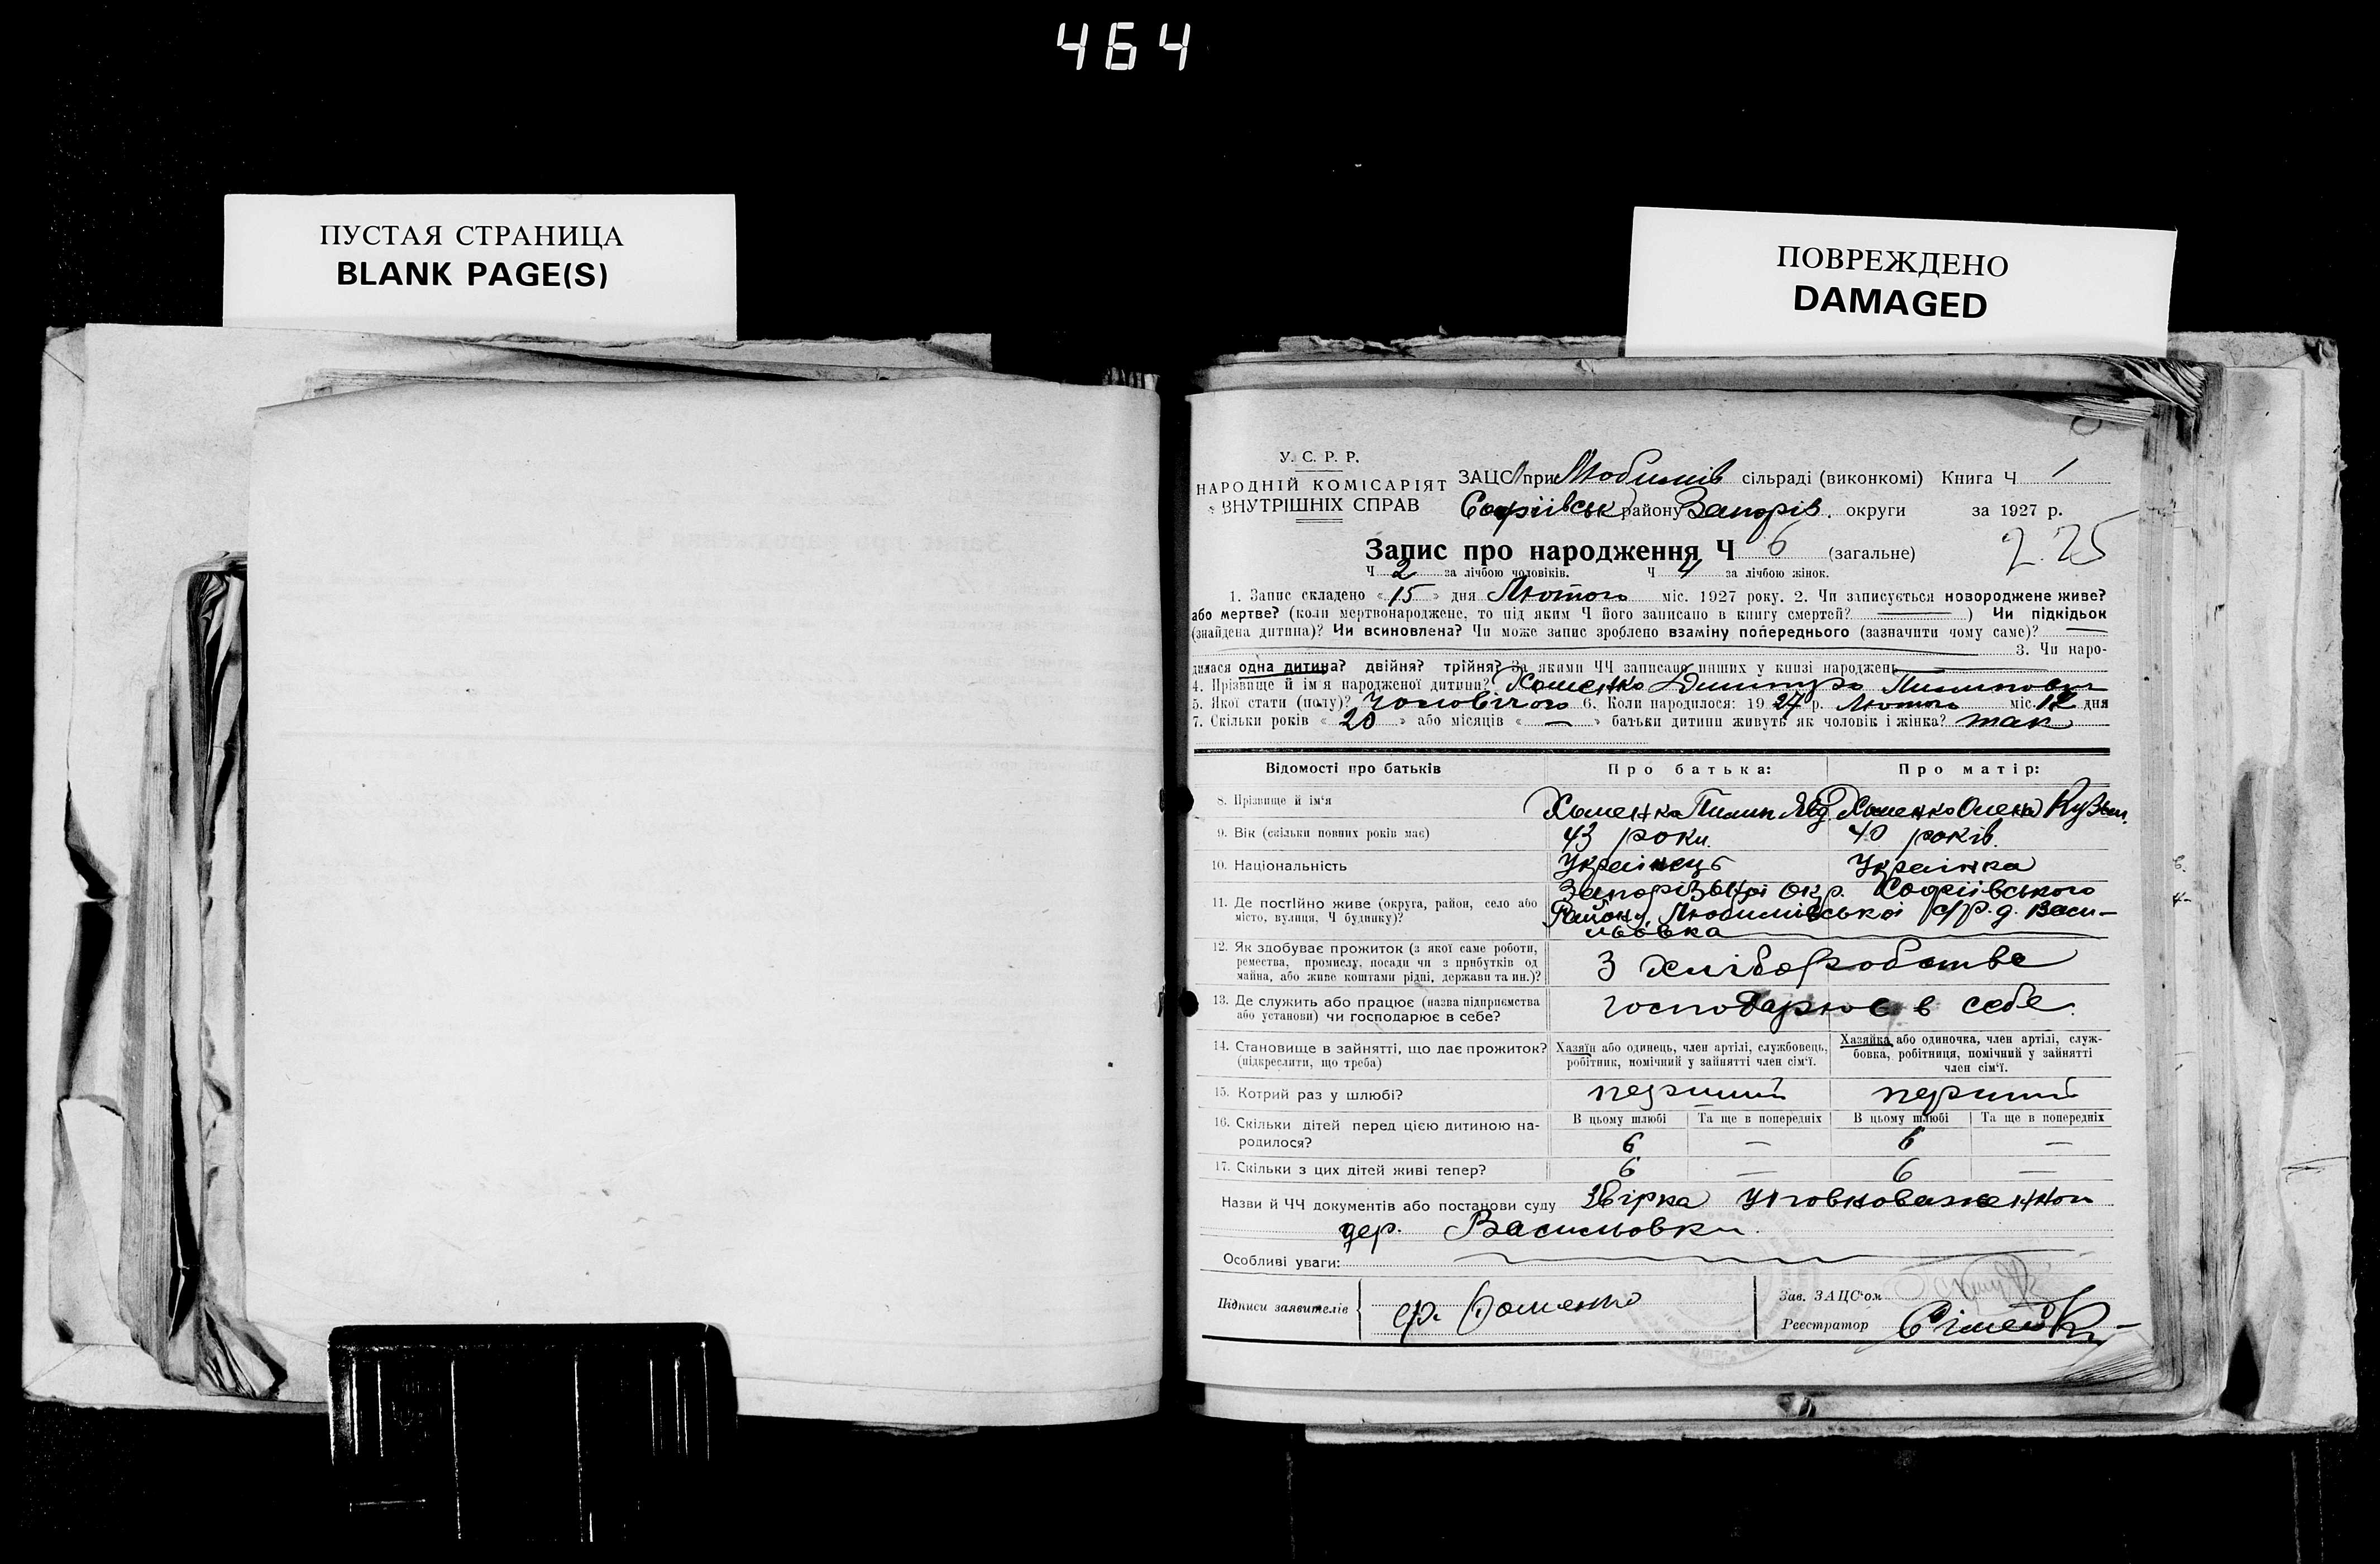 464
ПУСТАЯ СТРАНИЦА
BLANK PAGE(S)
ПОВРЕЖДЕНО
DAMAGED
У. С. Р. Р.
НАРОДНІЙ КОМІСАРІЯТ
ВНУТРІШНІХ СПРАВ
ЗАЦС при Любимів сільраді (виконкомі) Книга Ч 1
Софіівськ району Запоріз. округи за 1927 р.
Запис про народження Ч 6 (загальне) 2.25
Ч 2 за лічбою чоловіків. Ч 4 за лічбою жінок.
1. Запис складено « 15 » дня Лютого міс. 1927 року. 2. Чи записується новороджене живе?
або мертве? (коли мертвонароджене, то під яким Ч його записано в книгу смертей? — ) Чи підкідьок
(знайдена дитина)? Чи всиновлена? Чи може запис зроблено взаміну попереднього (зазначити чому саме)? —
3. Чи наро-
дилася одна дитина? двійня? трійня? За якими ЧЧ записано инших у книзі народжень
4. Прізвище й ім'я народженої дитини? Хоменко Дмитро Пилипович
5. Якої стати (полу)? Чоловічого 6. Коли народилося: 1927 р. Лютого міс. 12 дня
7. Скільки років « 20 » або місяців « — » батьки дитини живуть як чоловік і жінка? так
Відомості про батьків Про батька: Про матір:
8. Прізвище й ім'я Хоменко Пилип Хоменко Олена Кузьм.
9. Вік (скільки повних років має) 43 роки. 40 років.
10. Національність Украінець Украінка
11. Де постійно живе (округа, район, село або місто, вулиця, Ч будинку)? Запорізької Окр. Софіівського
Району, Любимівської с/р. д. Васи-
львка
12. Як здобуває прожиток (з якої саме роботи, ремества, промислу, посади чи з прибутків од майна, або живе коштами рідні, держави та ин.)? З хліборобства
13. Де служить або працює (назва підприємства або установи) чи господарює в себе? господарює в себе.
14. Становище в зайнятті, що дає прожиток? (підкреслити, що треба) Хазяїн або одинець, член артілі, службовець, робітник, помічний у зайнятті член сім'ї. Хазяйка або одиночка, член артілі, служ-
бовка, робітниця, помічний у зайнятті
член сім'ї.
15. Котрий раз у шлюбі? перший перший
16. Скільки дітей перед цією дитиною на-
родилося? В цьому шлюбі Та ще в попередніх В цьому шлюбі Та ще в попередніх
6 — 6 —
17. Скільки з цих дітей живі тепер? 6 — 6 —
Назви й ЧЧ документів або постанови суду Звірка уповноваженного
дер. Васильовки.
Особливі уваги:
Підписи заявителів Хоменко
Зав. ЗАЦС'ом
Реєстратор